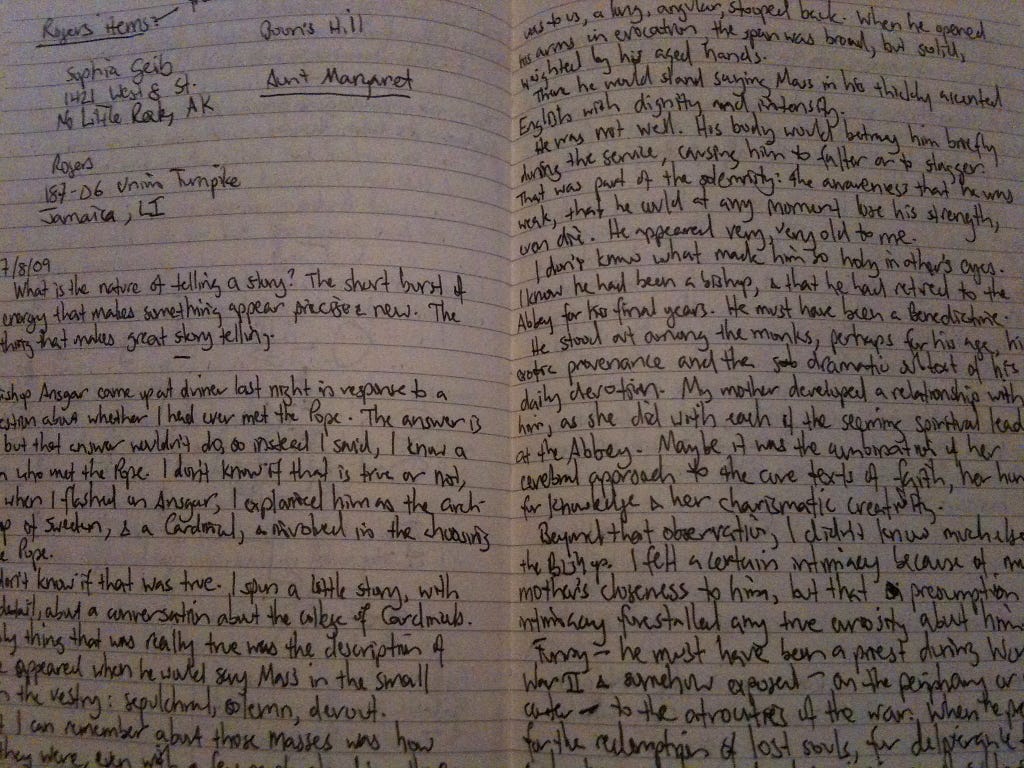 Rogers Items:
Sophia Geib
1421 West 8 St.
No Little Rock, AK
Rogers
187-06 Union Turnpike
Jamaica, LI
Hill
Aunt Margaret
7/8/09
What is the nature of telling a story? The short burst of
energy that makes something appear precise & new. The
thing that makes great story telling.
Ansgar came up at dinner last night in response to a
about whether I had ever met the Pope. The answer is
but that answer wouldn't do, so instead I said, I know a
who met the Pope. I don't know if that is true or not,
when I flashed on Ansgar, I explained him as the arch-
of Sweden, & a Cardinal, & involved in the choosing
Pope.
don't know if that was true. I spun a little story, with
detail, about a conversation about the college of Cardinals.
thing that was really true was the description of
appeared when he would say Mass in the small
the vestry: sepulchral, solemn, devout.
I can remember about those Masses was how
they were, even with a few
was to us, a long, angular, stooped back. When he opened
his arms in evocation the span was broad, but solid,
weighted by his aged hands.
There he would stand saying Mass in his thickly accented
English with dignity and intensity.
He was not well. His body would betray him briefly
during the service, causing him to falter or to stagger.
That was part of the solemnity: the awareness that he was
weak, that he could at any moment lose his strength,
even die. He appeared very, very old to me.
I don't know what made him so holy in other's eyes.
I know he had been a bishop, & that he had retired to the
Abbey for his final years. He must have been a Benedictine.
He stood out among the monks, perhaps for his age, his
exotic provenance and the dramatic subtext of his
daily devotion. My mother developed a relationship with
him, as she did with each of the seeming spiritual
at the Abbey. Maybe it was the combination of her
cerebral approach to the core texts of faith, her
for knowledge & her charismatic creativity.
Beyond that observation, I didn't know much
the Bishop. I felt a certain intimacy because of
mother's closeness to him, but that presumption
intimacy forestalled any true curiosity about him.
Funny – he must have been a priest during
War II & somehow exposed – on the periphery or
center – to the atrocities of the war. When he
for the redemption of lost souls, for